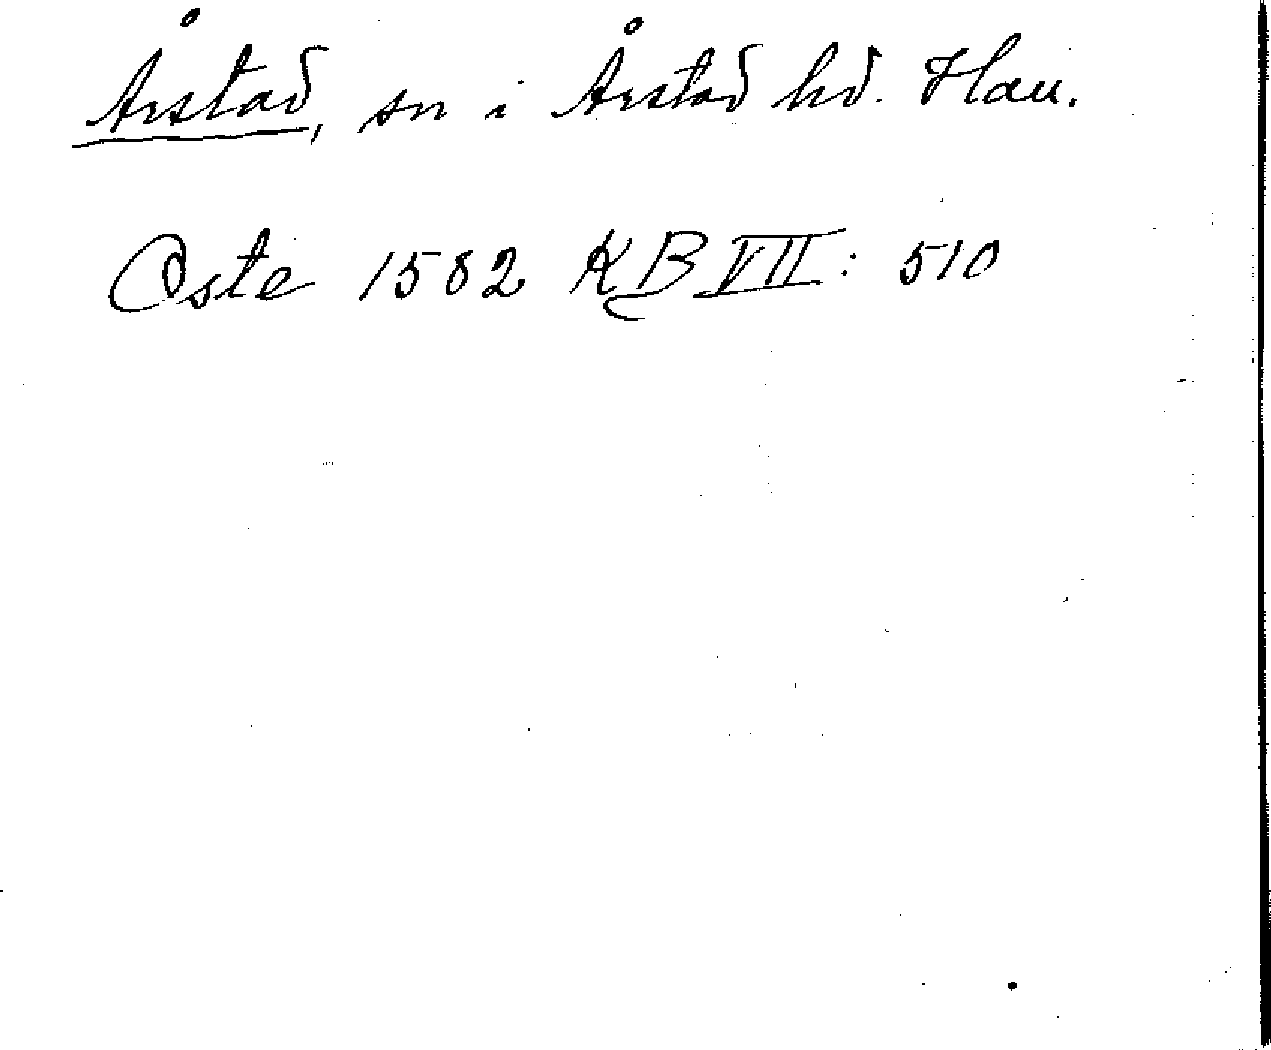 Årstad, sn i Årstad hd. Hall.
Oste 1582 KB VII: 510